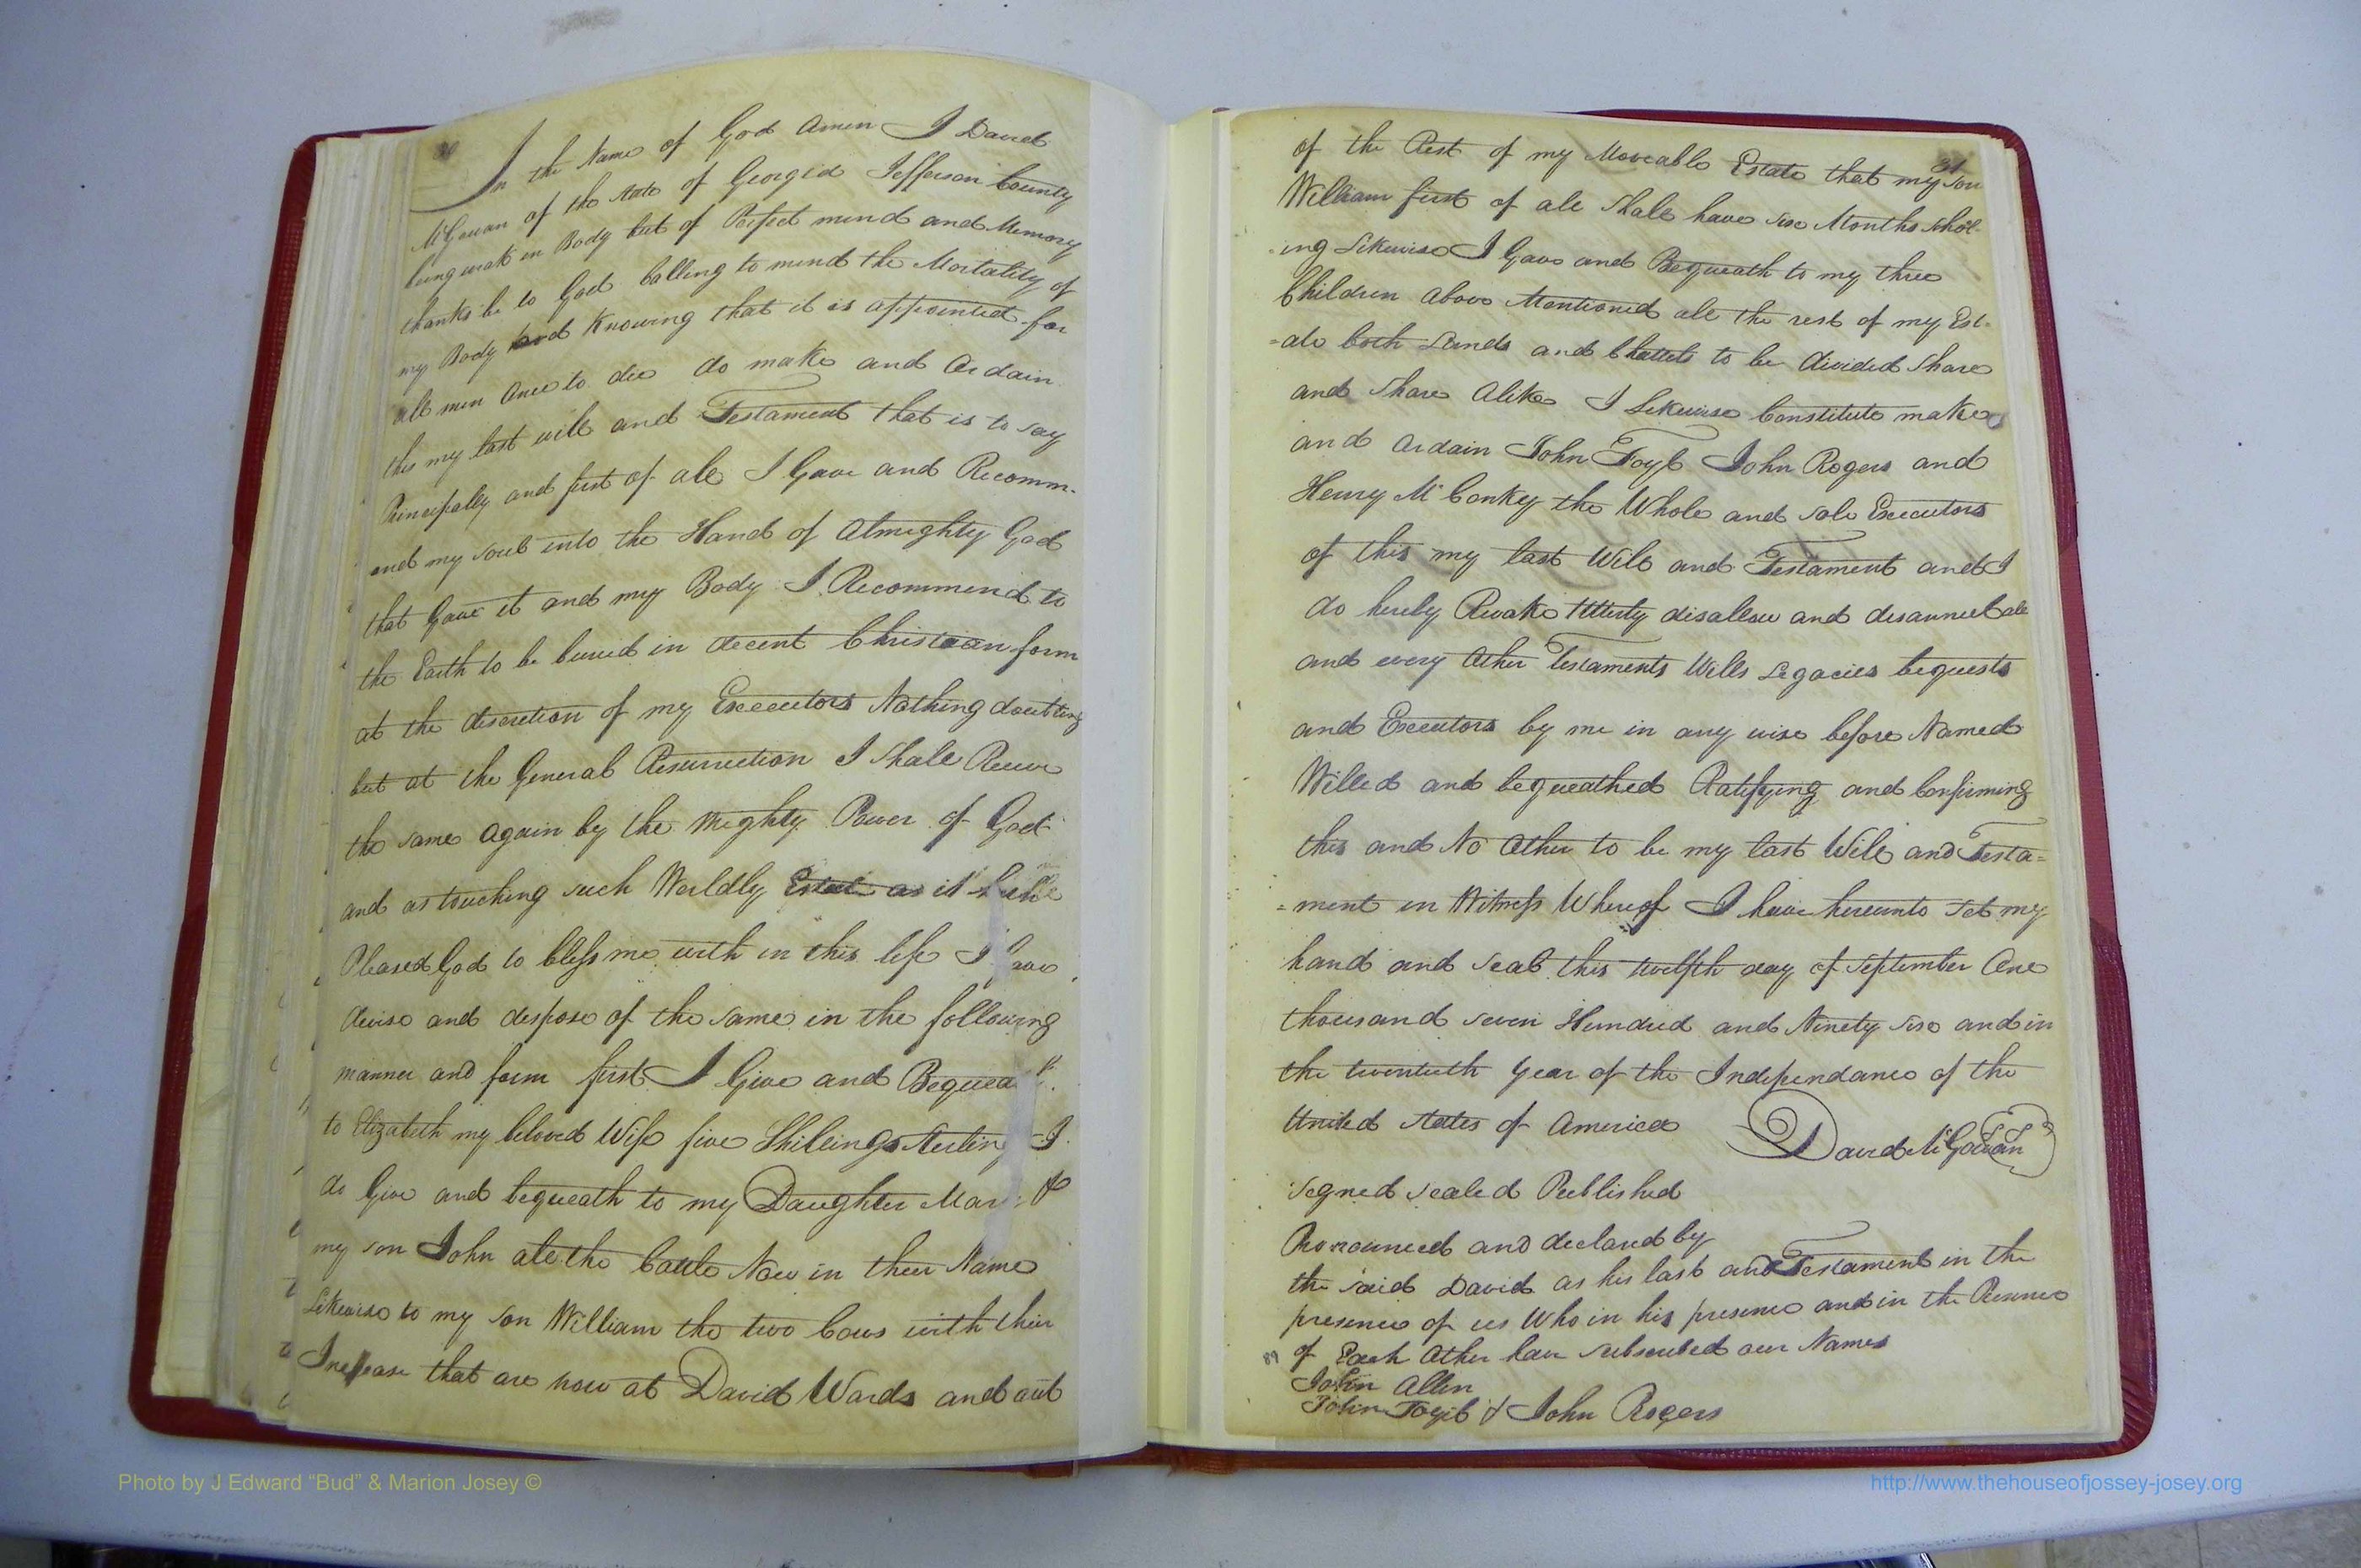 30
In the Name of God Amen I David
McGowan of the State of Georgia Jefferson County
being weak in Body but of Perfect mind and Memory
thanks be to God Calling to mind the Mortality of
my Body and Knowing that it is appointed for
all men Once to die do make and Ordain
this my last will and Testament that is to say
Principally and first of all I Gave and Recomm-
end my soul into the Hand of Almighty God
that Gave it and my Body I Recommend to
the Earth to be buried in decent Christian form
at the discretion of my Executors Nothing doubting
but at the General Resurrection I Shall Receive
the same again by the Mighty Power of God
and as touching such Worldly Estate as it hath
Pleased God to bless me with in this life I Gave
devise and dispose of the same in the following
manner and form first I Give and Bequeath
to Elizabeth my beloved Wife five Shillings Sterling I
do Give and bequeath to my Daughter Mary &
my son John all the Cattle Now in their Name
Likewise to my son William the two Cows with their
Increase that are now at David Wards and out
31
of the Rest of my Moveable Estate that my son
William first of all Shall have six Months Schol-
-ing Likewise I Gave and Bequeath to my three
Children above Mentioned all the rest of my Est-
-ate both Lands and Chattels to be divided Share
and Share Alike I Likewise Constitute make
and Ordain John Fogil John Rogers and
Henry McConkey the Whole and sole Executors
of this my last Will and Testament and I
do hereby Revoke Utterly disallow and disannul all
and every Other Testaments Wills Legacies bequests
and Executors by me in any wise before Named
Willed and bequeathed Ratifying and Confirming
this and No Other to be my last Will and Testa-
-ment in Witness Whereof I have hereunto set my
hand and seal this twelfth day of September One
thousand seven Hundred and Ninety Six and in
the twentieth Year of the Independance of the
United States of America David McGowan
Signed sealed Published
Pronounced and declared by
the said David as his last and Testament in the
presence of us Who in his presence and in the Presence
of Each Other have subscribed our Names
John Allen
John Fogil & John Rogers
Photo by J Edward “Bud” & Marion Josey ©
http://www.thehouseofjossey-josey.org